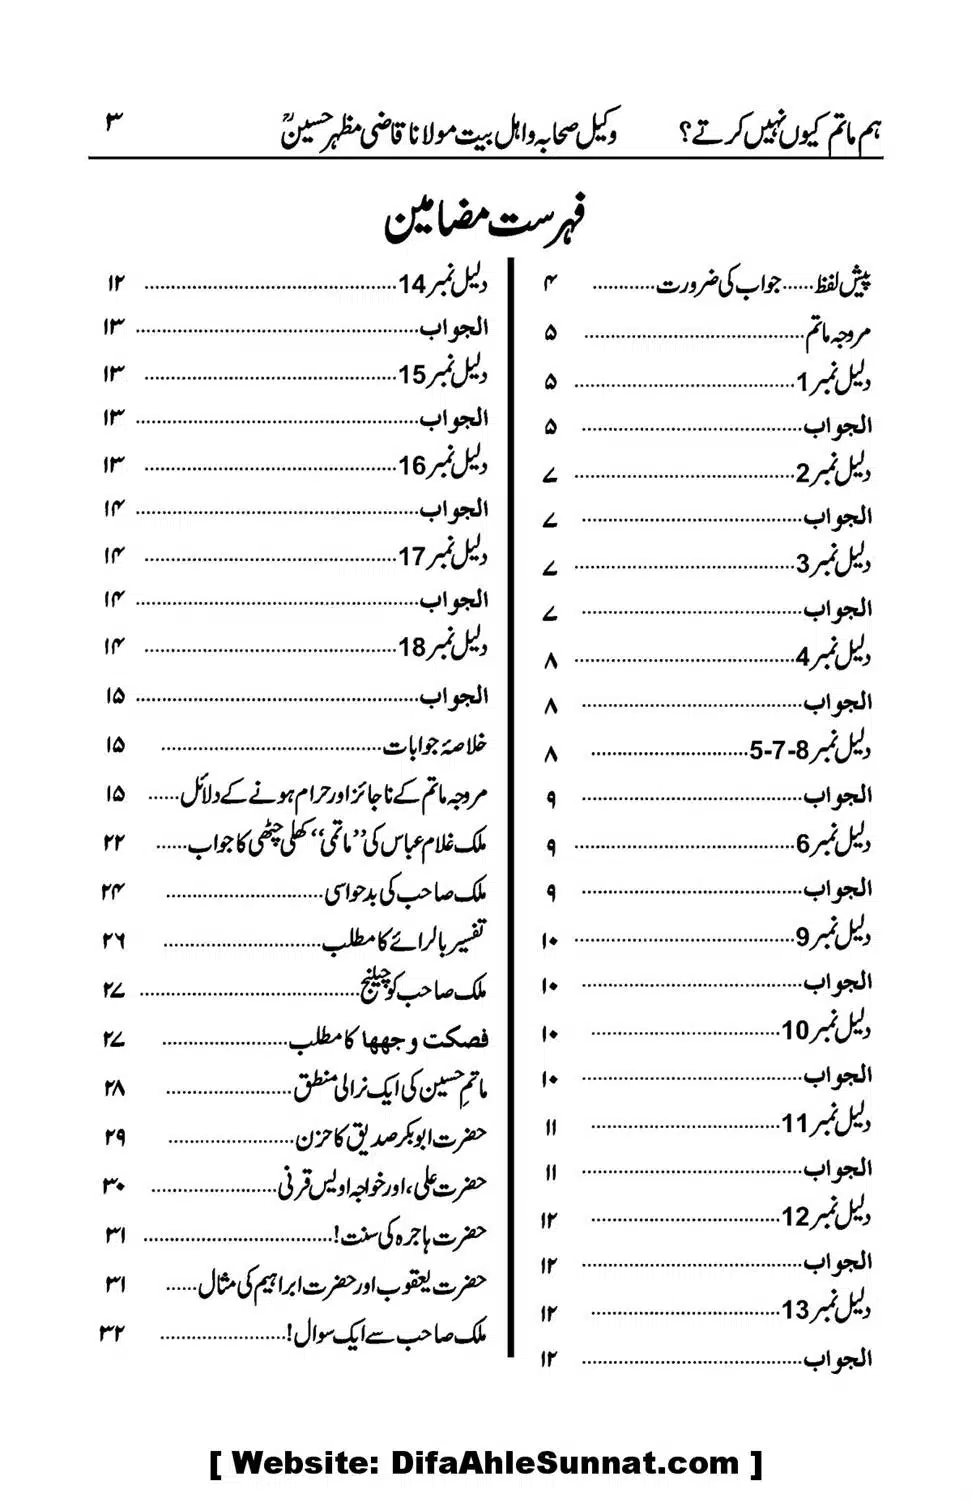 ہم ماتم کیوں نہیں کرتے؟ وکیل صحابہ و اہل بیت مولانا قاضی مظہر حسینؒ ۳
فہرست مضامین
پیش لفظ......جواب کی ضرورت............ ۴
مروجہ ماتم............ ۵
دلیل نمبر 1............ ۵
الجواب............ ۵
دلیل نمبر 2............ ۷
الجواب............ ۷
دلیل نمبر 3............ ۷
الجواب............ ۷
دلیل نمبر 4............ ۸
الجواب............ ۸
دلیل نمبر 8-7-5............ ۸
الجواب............ ۹
دلیل نمبر 6............ ۹
الجواب............ ۹
دلیل نمبر 9............ ۱۰
الجواب............ ۱۰
دلیل نمبر 10............ ۱۰
الجواب............ ۱۰
دلیل نمبر 11............ ۱۱
الجواب............ ۱۱
دلیل نمبر 12............ ۱۲
الجواب............ ۱۲
دلیل نمبر 13............ ۱۲
الجواب............ ۱۲
دلیل نمبر 14............ ۱۲
الجواب............ ۱۳
دلیل نمبر 15............ ۱۳
الجواب............ ۱۳
دلیل نمبر 16............ ۱۳
الجواب............ ۱۴
دلیل نمبر 17............ ۱۴
الجواب............ ۱۴
دلیل نمبر 18............ ۱۴
الجواب............ ۱۵
خلاصۂ جوابات............ ۱۵
مروجہ ماتم کے ناجائز اور حرام ہونے کے دلائل...... ۱۵
ملک غلام عباس کی ’’ماتمی‘‘ کھلی چٹھی کا جواب...... ۲۲
ملک صاحب کی بدحواسی............ ۲۴
تفسیر بالرائے کا مطلب............ ۲۶
ملک صاحب کو چیلنج............ ۲۷
فصکت وجھھا کا مطلب............ ۲۷
ماتمِ حسین کی ایک نرالی منطق............ ۲۸
حضرت ابوبکر صدیق کا حزن............ ۲۹
حضرت علی، اور خواجہ اویس قرنی............ ۳۰
حضرت ہاجرہ کی سنت!............ ۳۱
حضرت یعقوب اور حضرت ابراہیم کی مثال...... ۳۱
ملک صاحب سے ایک سوال!............ ۳۲
[ Website: DifaAhleSunnat.com ]